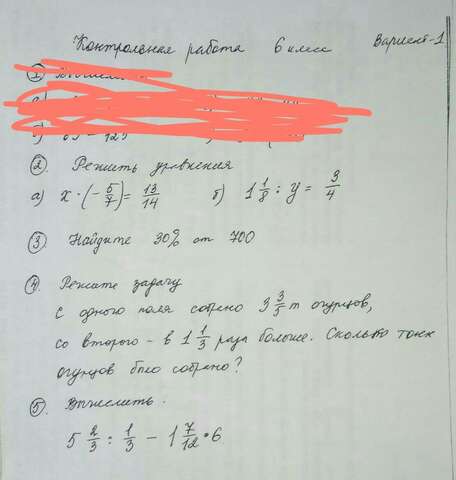 Контрольная работа 6 класс Вариант-1
① Вычислить
② Решить уравнения
а) x · (- 5/7) = 13/14 б) 1 1/8 : y = 3/4
③ Найдите 30% от 700
④ Решите задачу
С одного поля собрано 3 3/5 т огурцов,
со второго - в 1 1/3 раза больше. Сколько тонн
огурцов было собрано?
⑤ Вычислить.
5 2/3 : 1/3 - 1 7/12 · 6